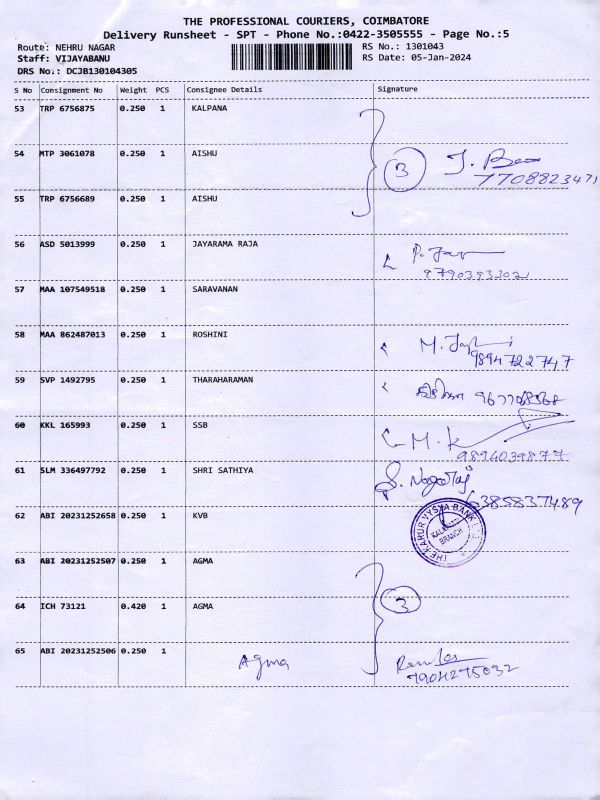 THE PROFESSIONAL COURIERS, COIMBATORE
Delivery Runsheet - SPT - Phone No.:0422-3505555 - Page No.:5
Route: NEHRU NAGAR RS No.: 1301043
Staff: VIJAYABANU RS Date: 05-Jan-2024
DRS No.: DCJB130104305
S No Consignment No Weight PCS Consignee Details Signature
53 TRP 6756875 0.250 1 KALPANA
54 MTP 3061078 0.250 1 AISHU 3
7708823471
55 TRP 6756689 0.250 1 AISHU
56 ASD 5013999 0.250 1 JAYARAMA RAJA
9790393302
57 MAA 107549518 0.250 1 SARAVANAN
58 MAA 862487013 0.250 1 ROSHINI
9894722747
59 SVP 1492795 0.250 1 THARAHARAMAN
60 KKL 165993 0.250 1 SSB
9894039877
61 SLM 336497792 0.250 1 SHRI SATHIYA S. Nagaraj
6385837489
62 ABI 20231252658 0.250 1 KVB
THE KARUR VYSYA BANK LTD
BRANCH
63 ABI 20231252507 0.250 1 AGMA
64 ICH 73121 0.420 1 AGMA 3
65 ABI 20231252506 0.250 1 Agma
7904275032